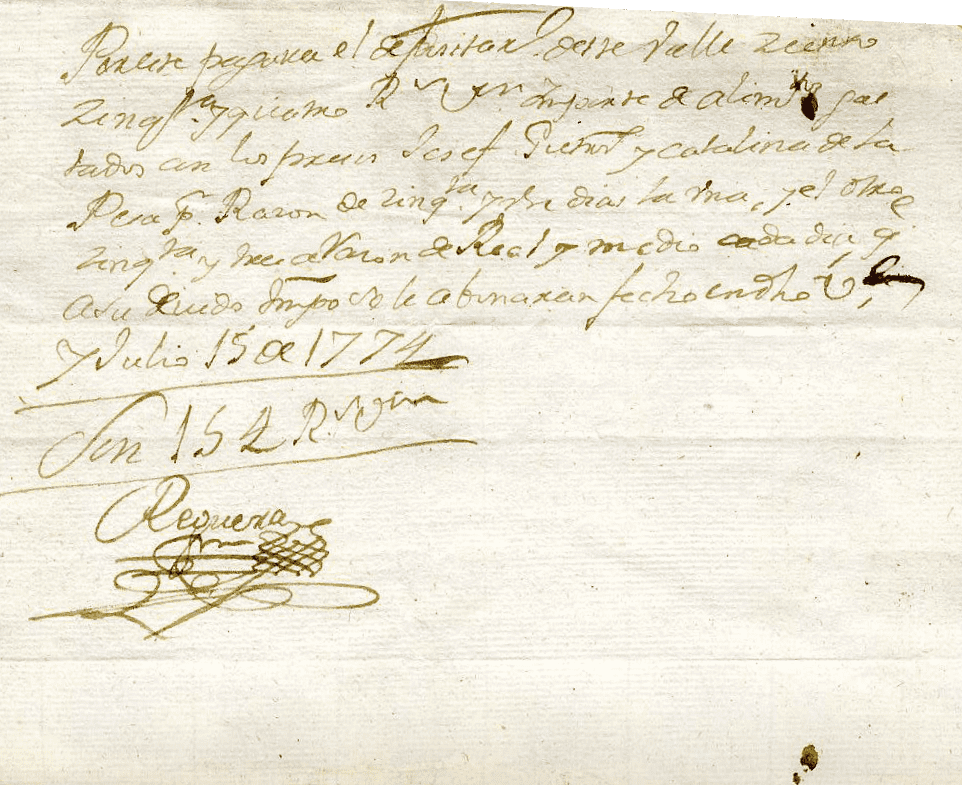 Por este pagara el depositarº deste Valle zciento
zinqta y quatro Rs Von Importe de alimtos gas
tados con los presos Josef y Catalina de la
Pera pr Razon de zinqta y dias la Vna, y el otro
zinqta y tres a Razon de Real y medio cada dia, q
a su devido tmpo se le abonaran fecho en dho Ve
y Julio 15 de 1774
Son 154 Rs Von
Requena